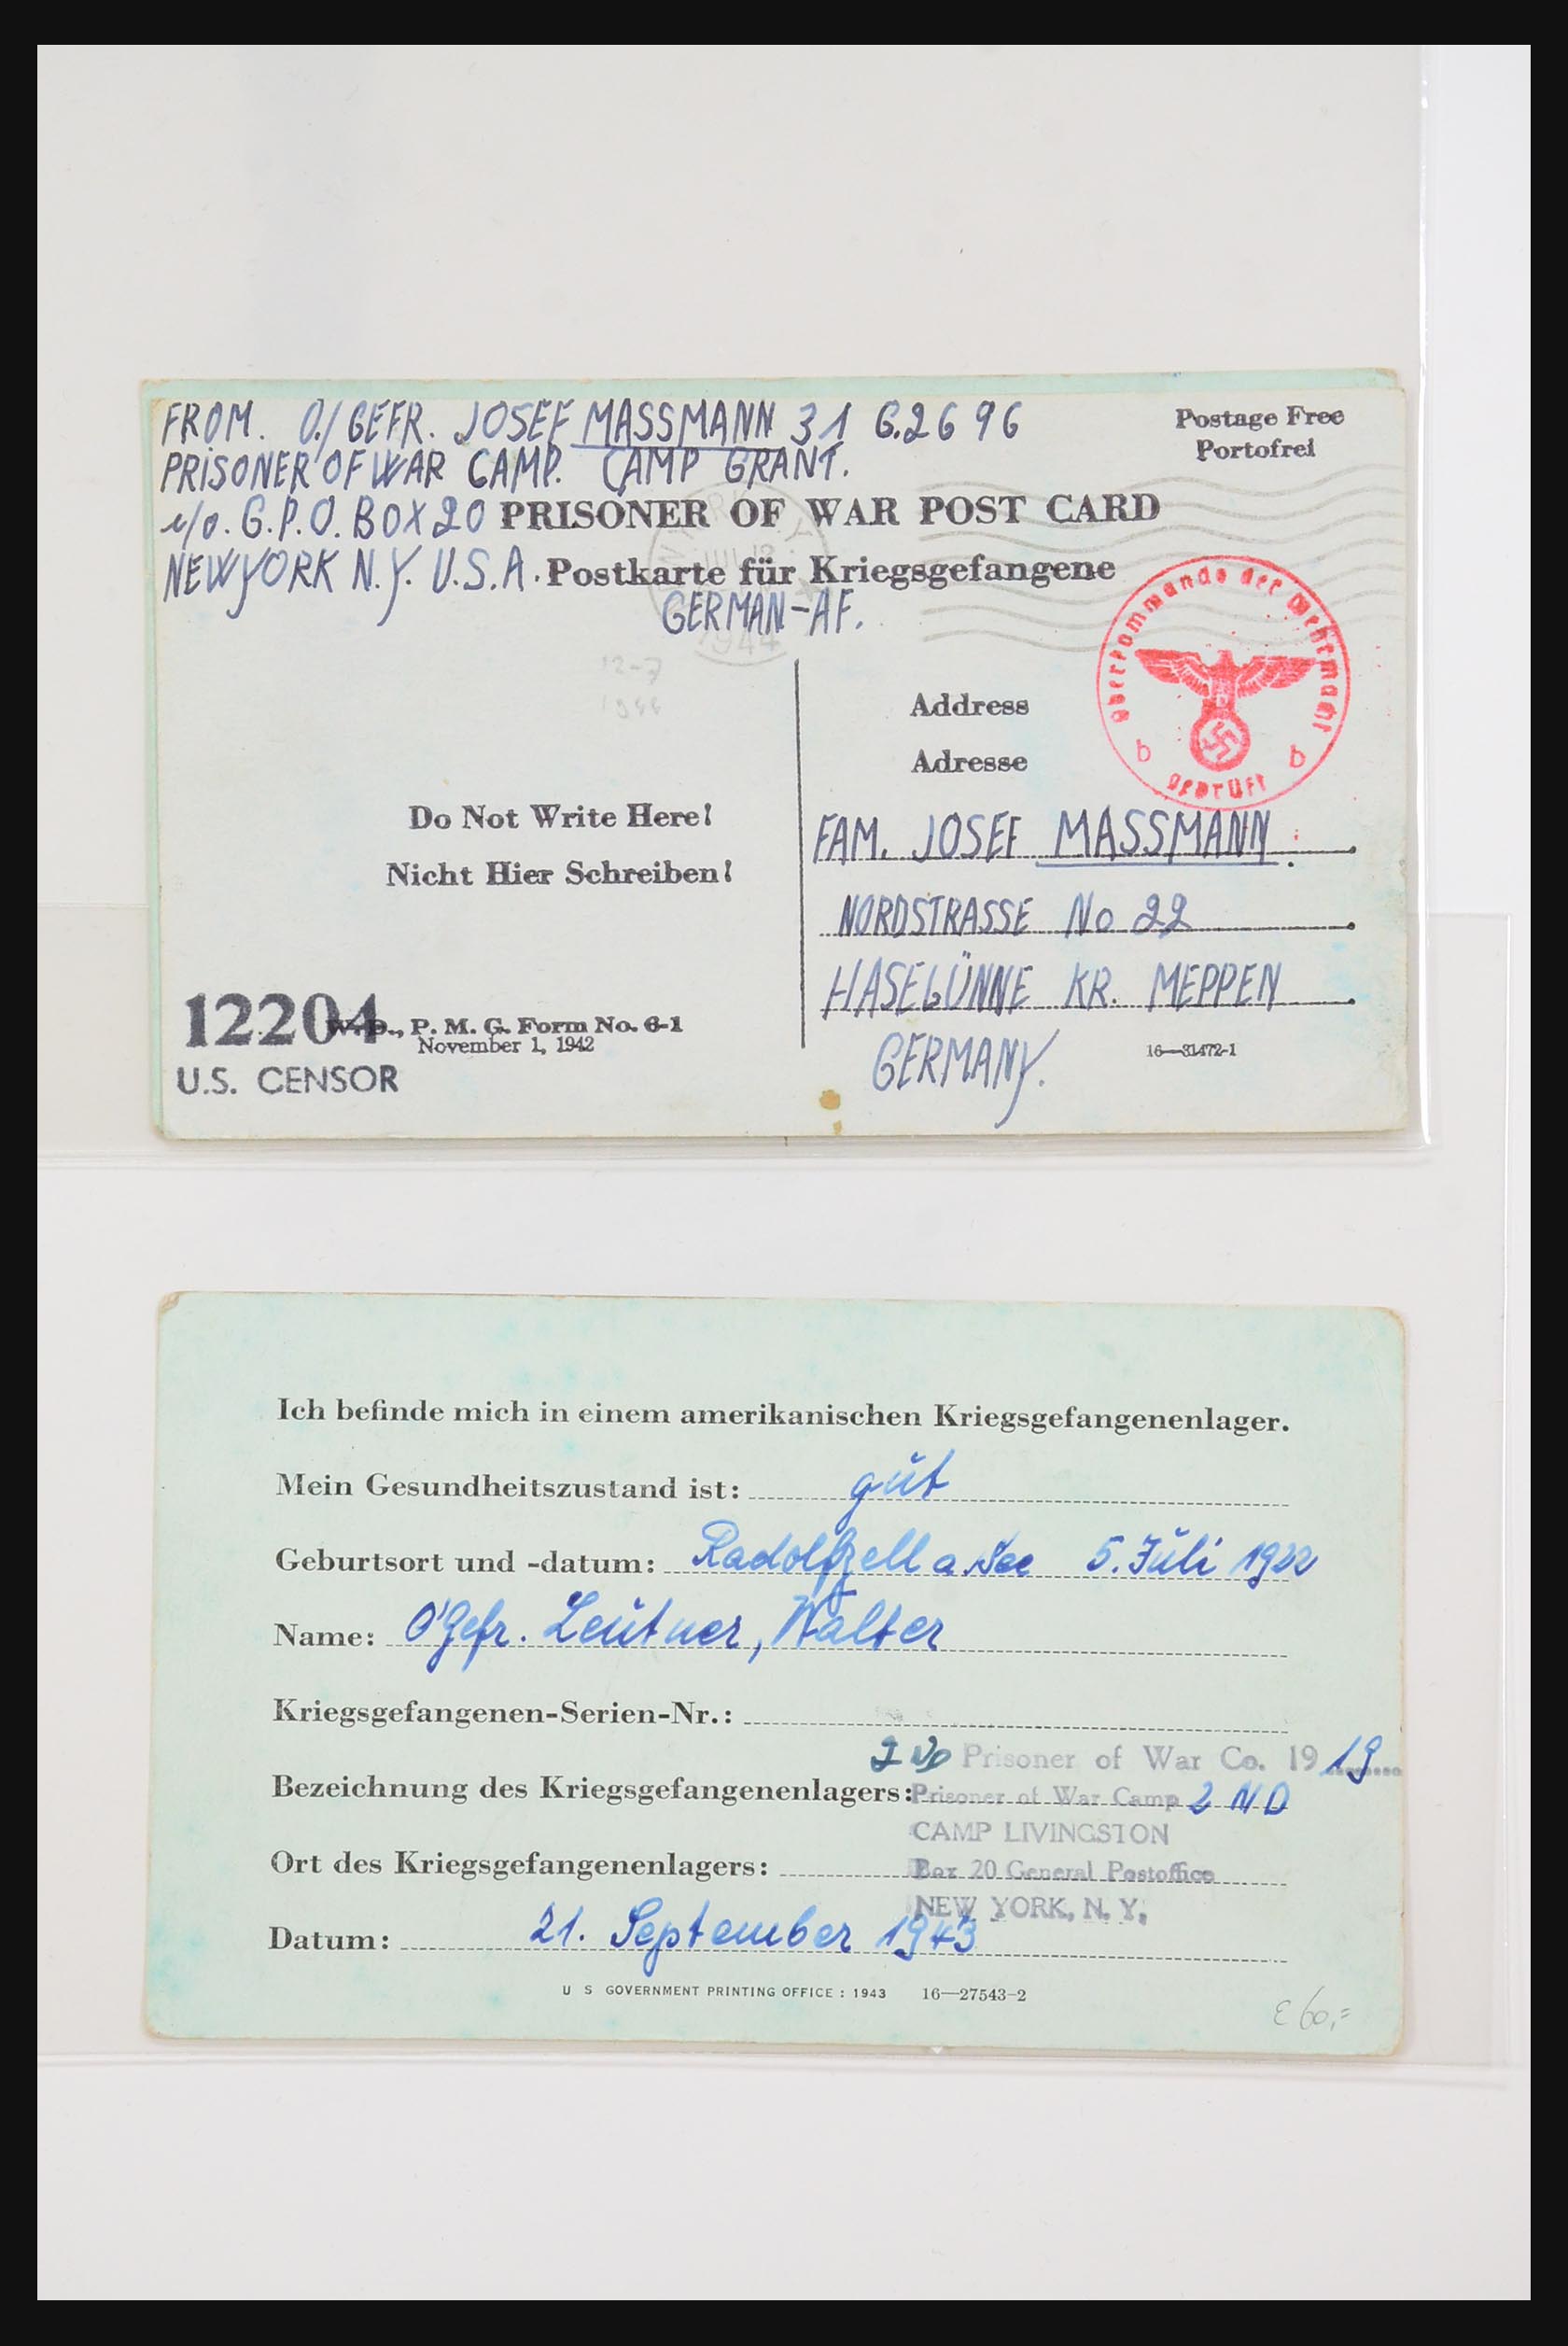 FROM. O./GEFR. JOSEF MASSMANN 31 G.2696
Postage Free
Portofrei
PRISONER OF WAR CAMP. CAMP GRANT.
c/o. G.P.O. BOX 20 PRISONER OF WAR POST CARD
NEWYORK N.Y. U.S.A. Postkarte für Kriegsgefangene
GERMAN-AF.
1944
12-7
1944
Oberkommando der Wehrmacht
b b
geprüft
Address
Adresse
Do Not Write Here!
Nicht Hier Schreiben!
FAM. JOSEF MASSMANN.
NORDSTRASSE No 22
HASELÜNNE KR. MEPPEN
GERMANY.
12204
W. D., P. M. G. Form No. 6-1
November 1, 1942
16—31472-1
U.S. CENSOR
Ich befinde mich in einem amerikanischen Kriegsgefangenenlager.
Mein Gesundheitszustand ist: gut
Geburtsort und -datum: Radolfzell a. See 5. Juli 1922
Name: O'Gefr. Leutner, Walter
Kriegsgefangenen-Serien-Nr.:
2 ND Prisoner of War Co. 19 19
Bezeichnung des Kriegsgefangenenlagers: Prisoner of War Camp 2 ND
CAMP LIVINGSTON
Ort des Kriegsgefangenenlagers: Box 20 General Postoffice
NEW YORK, N. Y.
Datum: 21. September 1943
U S GOVERNMENT PRINTING OFFICE : 1943 16—27543-2
€ 60,=